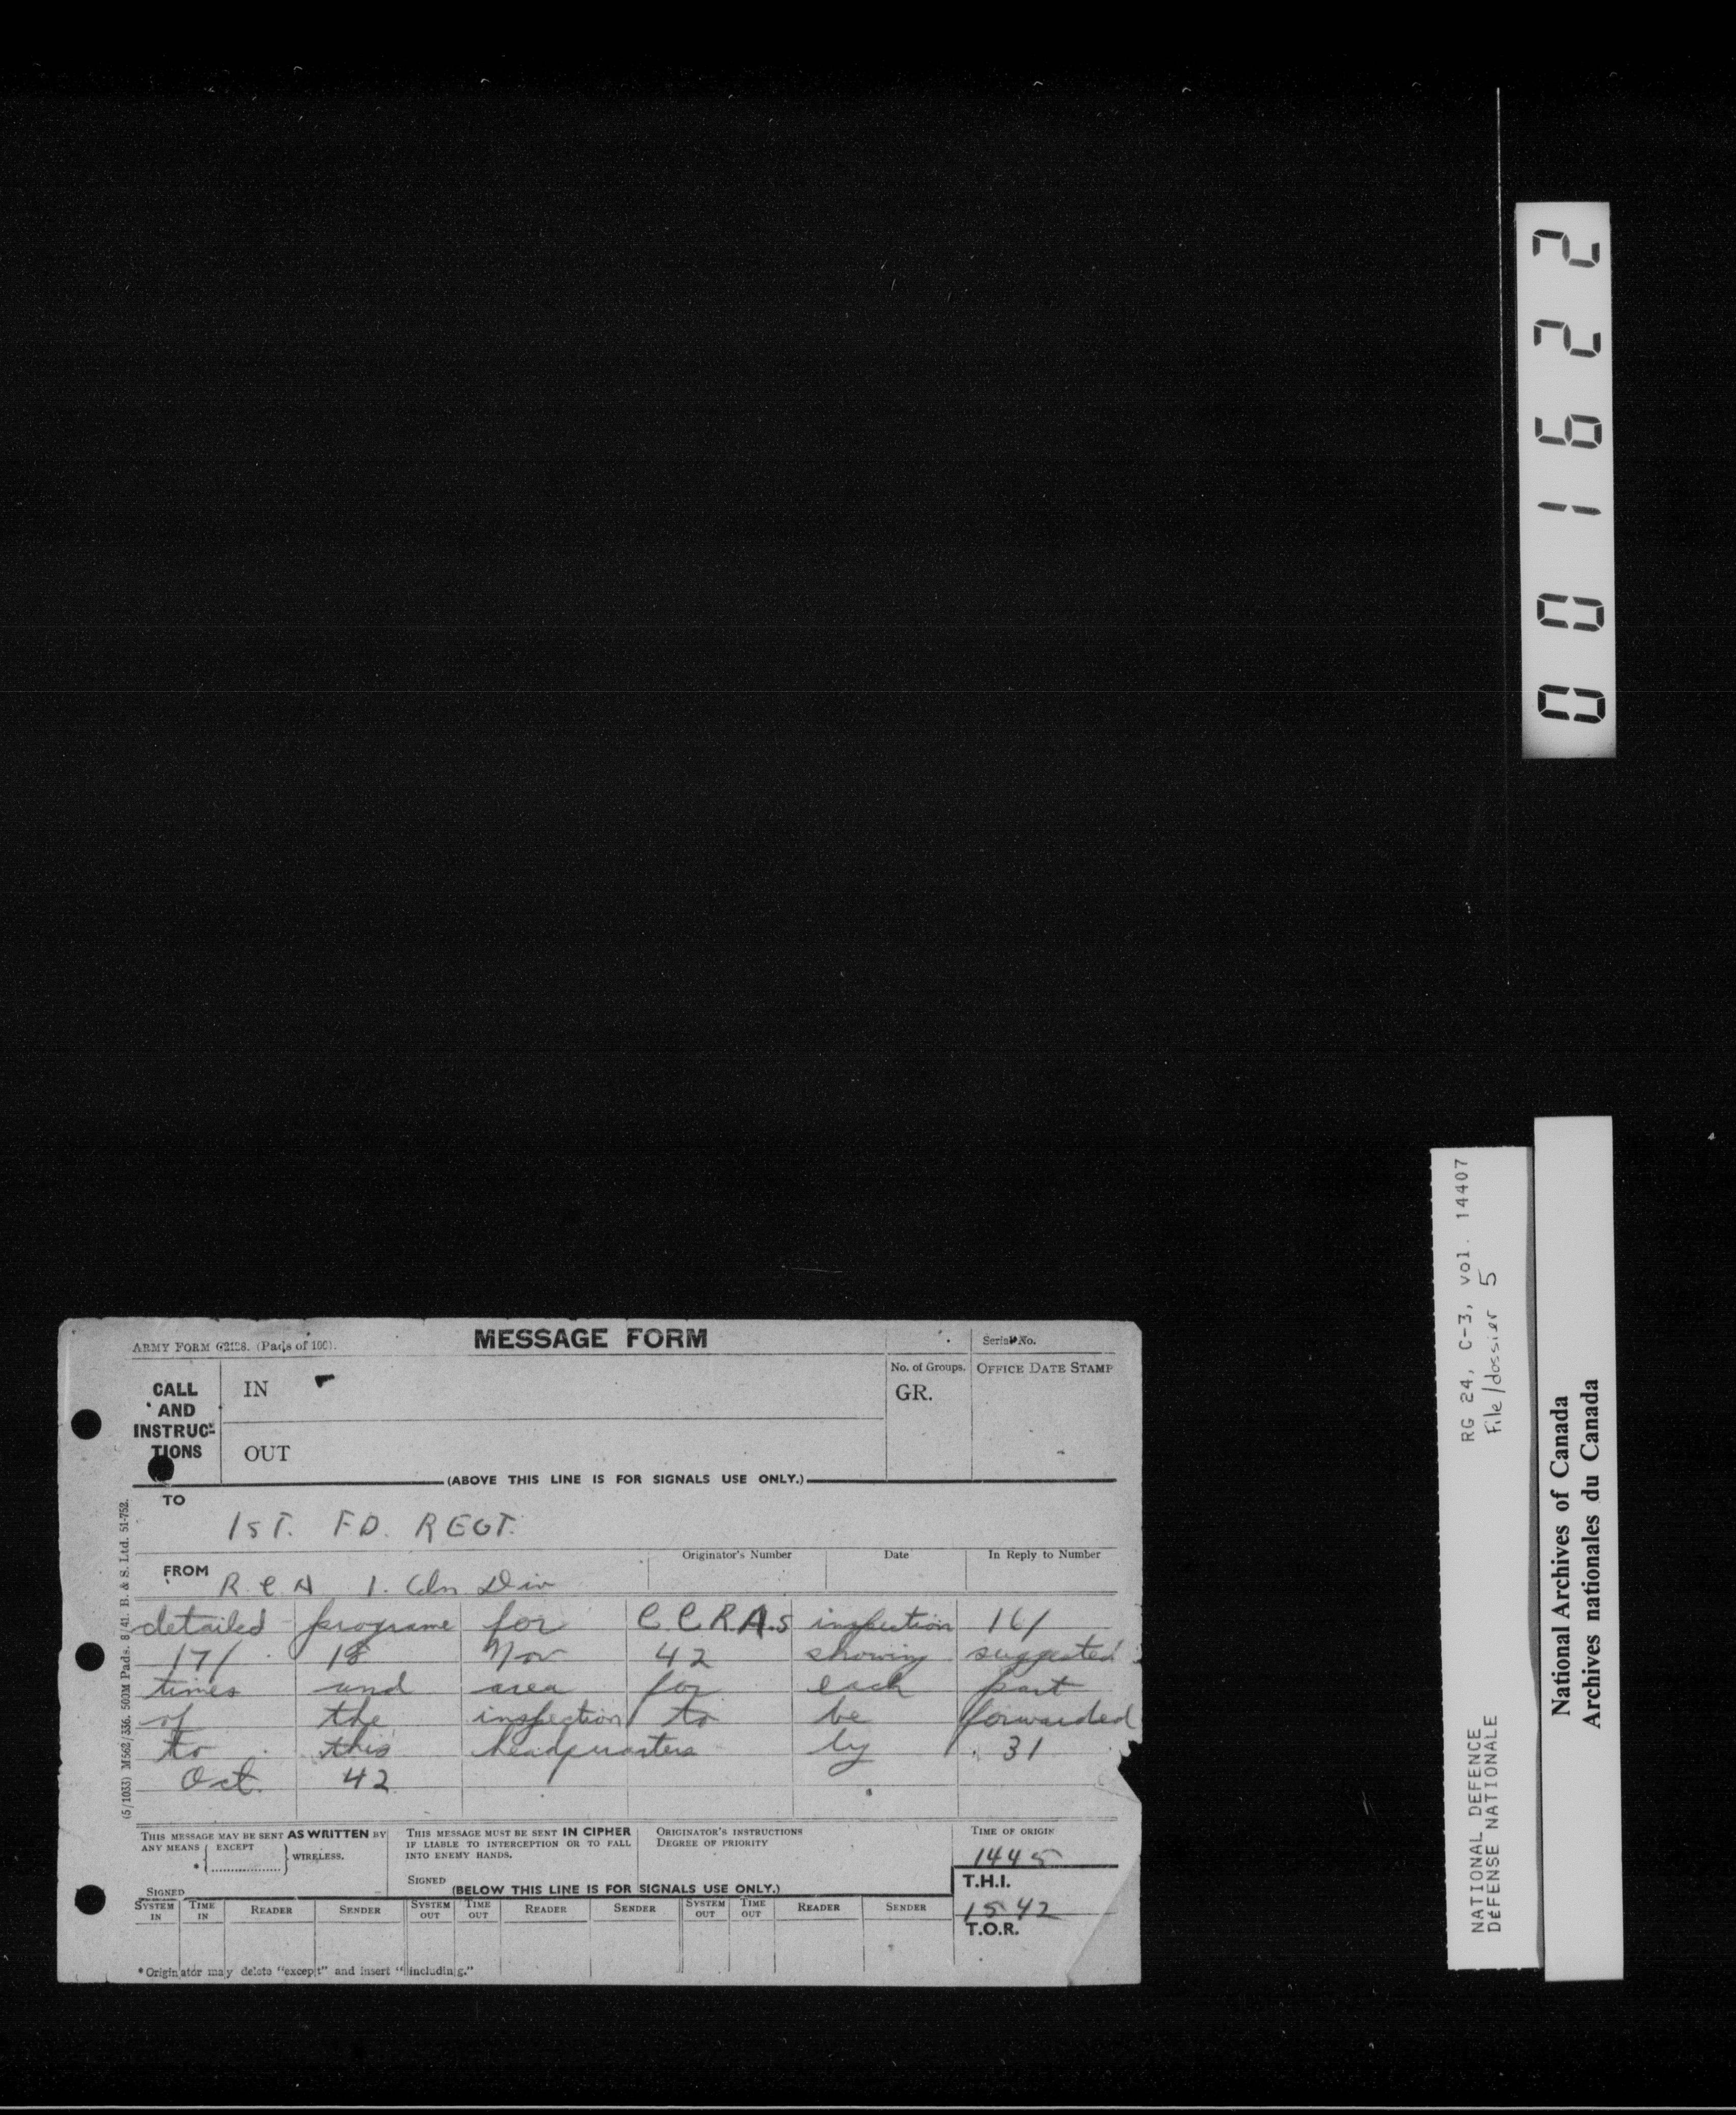 ARMY FORM C2128. (Pads of 100).
MESSAGE FORM
Serial No.
CALL AND INSTRUC-TIONS
IN
OUT
No. of Groups.
GR.
OFFICE DATE STAMP
(ABOVE THIS LINE IS FOR SIGNALS USE ONLY.)
TO
1ST. FD. REGT.
FROM
R C A 1. Cdn Div
Originator's Number
Date
In Reply to Number
detailed programe for C.C.R.A.s inspection 16/
17/ 18 Nov 42 showing suggested
times and area for each part
of the inspection to be forwarded
to this headquarters by 31
Oct. 42
(5/1033) M562/336. 500M Pads. 8/41. B. & S. Ltd. 51-752.
THIS MESSAGE MAY BE SENT AS WRITTEN BY
ANY MEANS { EXCEPT
* ................. } WIRELESS.
SIGNED
THIS MESSAGE MUST BE SENT IN CIPHER
IF LIABLE TO INTERCEPTION OR TO FALL
INTO ENEMY HANDS.
SIGNED
ORIGINATOR'S INSTRUCTIONS
DEGREE OF PRIORITY
TIME OF ORIGIN
1445
T.H.I.
1542
T.O.R.
(BELOW THIS LINE IS FOR SIGNALS USE ONLY.)
SYSTEM IN TIME IN READER SENDER SYSTEM OUT TIME OUT READER SENDER SYSTEM OUT TIME OUT READER SENDER
*Originator may delete "except" and insert "including."
001622
RG 24, C-3, vol. 14407
File/dossier 5
NATIONAL DEFENCE
DÉFENSE NATIONALE
National Archives of Canada
Archives nationales du Canada